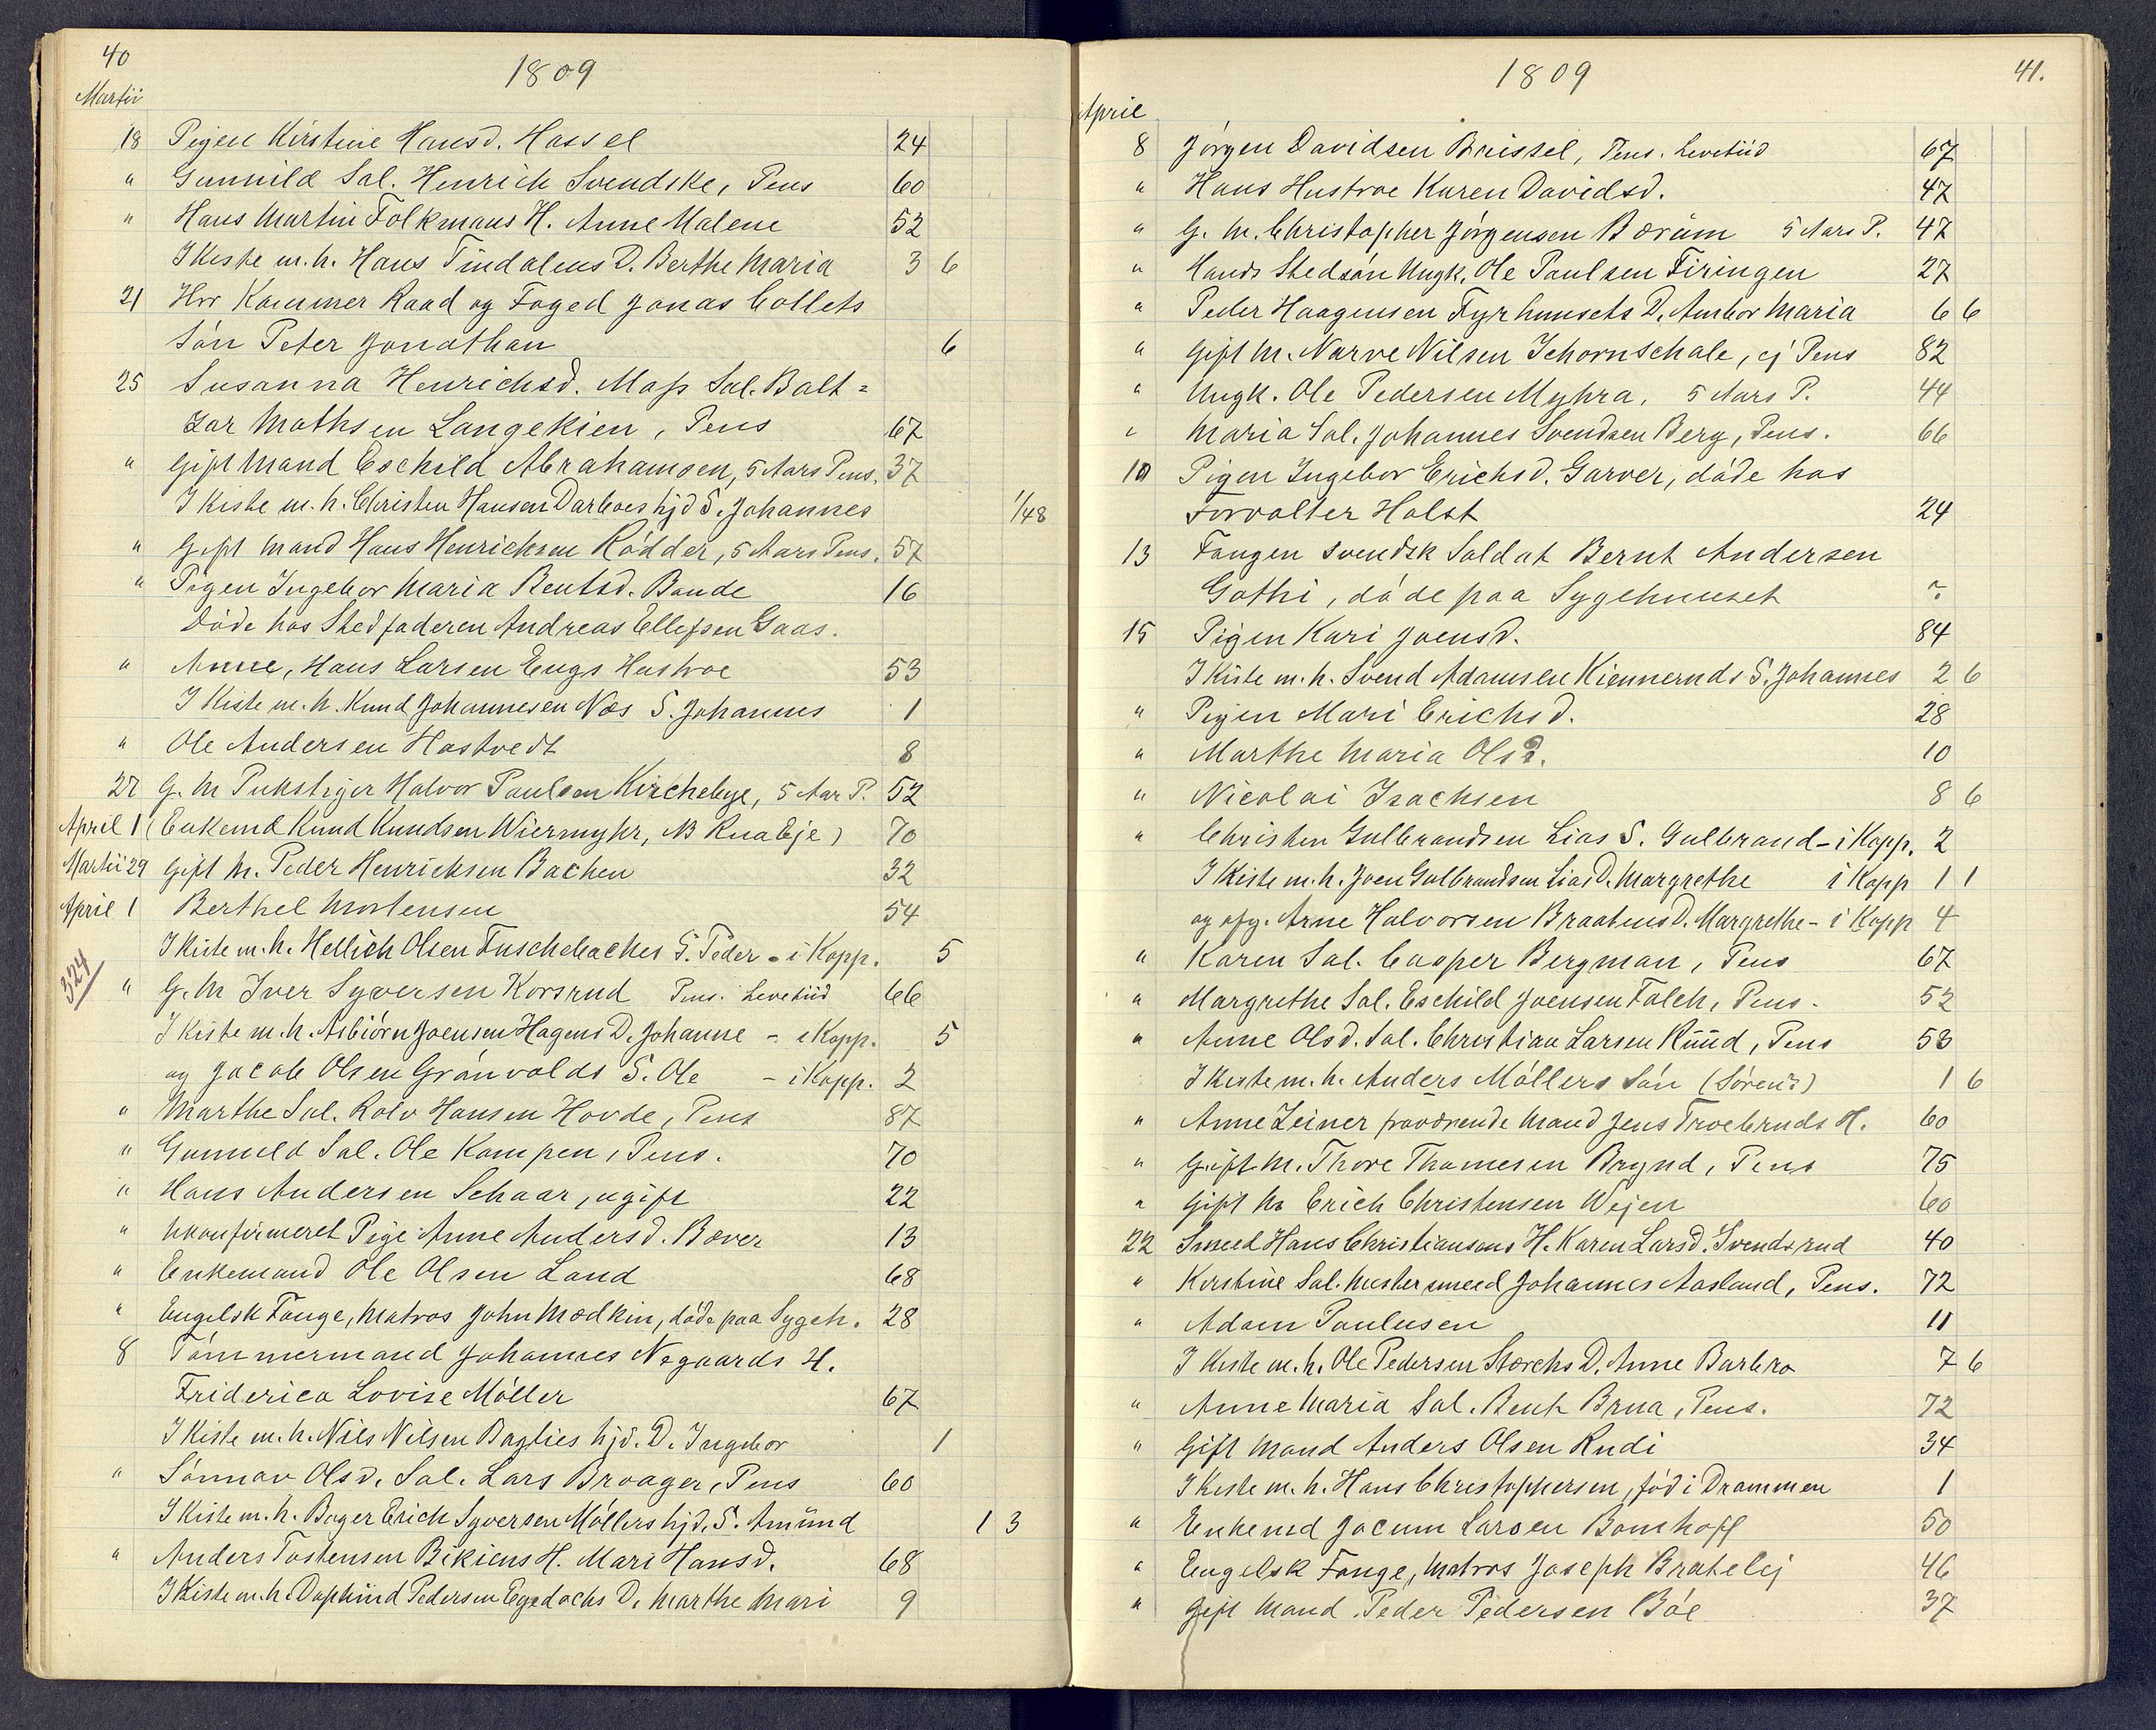 40
1809
Martii
18 Pigen Kirstine Hansd. Hassel 24
" Gunnild Sal. Henrich Svendske, Pens 60
" Hans Martin Folkmans H. Anne Malene 52
I Kiste m. h. Hans Tindalens D. Berthe Maria 3 6
21 Hrr Kammer Raad og Foged Jonas Collets
Sön Peter Jonathan 6
25 Susanna Henrichsd. Moss Sal. Balt=
zar Mathsen Langekien, Pens 67
" Gift Mand Eschild Abrahamsen, 5 Aars Pens. 37
I Kiste m. h. Christen Hansen Darboes hjd S. Johannes 1/48
" Gift Mand Hans Henrichsen Rödder, 5 Aars Pens. 57
" Pigen Ingebor Maria Bentsd. Bande 16
Döde hos Stedfaderen Andreas Ellefsen Gaas.
" Anne, Hans Larsen Engs Hustroe 53
I Kiste m. h. Knud Johannesen Næs S. Johannes 1
" Ole Andersen Hastvedt 8
27 G. M Pukstiger Halvor Paulsen Kirchebye, 5 Aar P. 52
April 1 (Enkemd Knud Knudsen Wiermyhr, NB Rua Eje) 70
Martii 29 Gift M. Peder Henrichsen Bachen 32
April 1 Berthel Mortensen 54
I Kiste m. h. Hellich Olsen Fuschebaches S. Peder - i Kopp. 5
324
" G. M Iver Syversen Korsrud Pens. Levetiid 66
I Kiste m. h. Asbiörn Joensen Hagens D. Johanne - i Kopp. 5
og Jacob Olsen Grönvolds S. Ole - i Kopp. 2
" Marthe Sal. Rolv Hansen Hovde, Pens 87
" Gunnild Sal. Ole Kampen, Pens. 70
" Hans Andersen Schaar, ugift 22
" Ukonfirmeret Pige Anne Andersd. Bæver 13
" Enkemand Ole Olsen Land 68
" Engelsk Fange, Matros John Mædkin, döde paa Sygeh. 28
8 Tömmermand Johannes Negaards H.
Friderica Lovise Möller 67
I Kiste m. h. Nils Nilsen Baglies hjd. D. Ingebor 1
" Sönnav Olsd. Sal. Lars Broager, Pens 60
I Kiste m. h. Bager Erich Syversen Möllers hjd. S. Amünd 1 3
" Anders Tostensen Bekiens H. Mari Hansd. 68
I Kiste m. h. Daphind Pedersen Egedachs D. Marthe Mari 9
1809
41.
April
8 Jörgen Davidsen Brüssel, Pens. Levetiid 67
" Hans Hustroe Karen Davidsd. 47
" G. M. Christopher Jörgensen Bærüm 5 Aars P. 47
" Hands Stedsön Ungk. Ole Paulsen Firingen 27
" Peder Haagensen Fyrhuusets D. Ambor Maria 6 6
" Gift M. Narve Nilsen Schornschale, ej Pens 82
" Ungk. Ole Pedersen Myhra, 5 Aars P. 44
" Maria Sal. Johannes Svendsen Berg, Pens. 66
10 Pigen Ingebor Erichsd. Garver, döde hos
Forvalter Holst 24
13 Fangen svendsk Soldat Bernt Andersen
Gothi, döde paa Sygehuuset ~
15 Pigen Kari Joensd. 84
I Kiste m. h. Svend Adamsen Kiennernds S. Johannes 2 6
" Pigen Mari Erichsd. 28
" Marthe Maria Olsd. 10
" Nicolai Isachsen 8 6
" Christen Gulbrandsen Lias S. Gulbrand - i Kopp. 2
I Kiste m. h. Joen Gulbrandsen Lias D. Margrethe i Kopp 1 1
og ofg. Arne Halvorsen Braatens D. Margrethe - i Kopp 4
" Karen Sal. Casper Bergman, Pens 67
" Margrethe Sal. Eschild Joensen Falch, Pens. 52
" Anne Olsd. Sal. Christian Larsen Rüüd, Pens 53
I Kiste m. h. Anders Möllers Sön (Sören?) 1 6
" Anne Zeiner fraværende Mand Jens Troebruds H. 60
" Gift M. Thore Thomesen Bagnd, Pens 75
" Gift M Erich Christensen Wejen 60
22 Smeed Hans Christiansens H. Karen Larsd. Svendsrud 40
" Kirstine Sal. Mestersmeed Johannes Aasland, Pens. 72
" Adam Paulusen 11
I Kiste m. h. Ole Pedersen Storchs D. Anne Barbro 7 6
" Anne Maria Sal. Bent Brua, Pens. 72
" Gift Mand Anders Olsen Rudi 34
I Kiste m. h. Hans Christophersen, föd i Drammen 1
" Enkemd Jocum Larsen Bomhoff 50
" Engelsk Fange, Matros Joseph Bratelej 46
" Gift Mand Peder Pedersen Böe 37